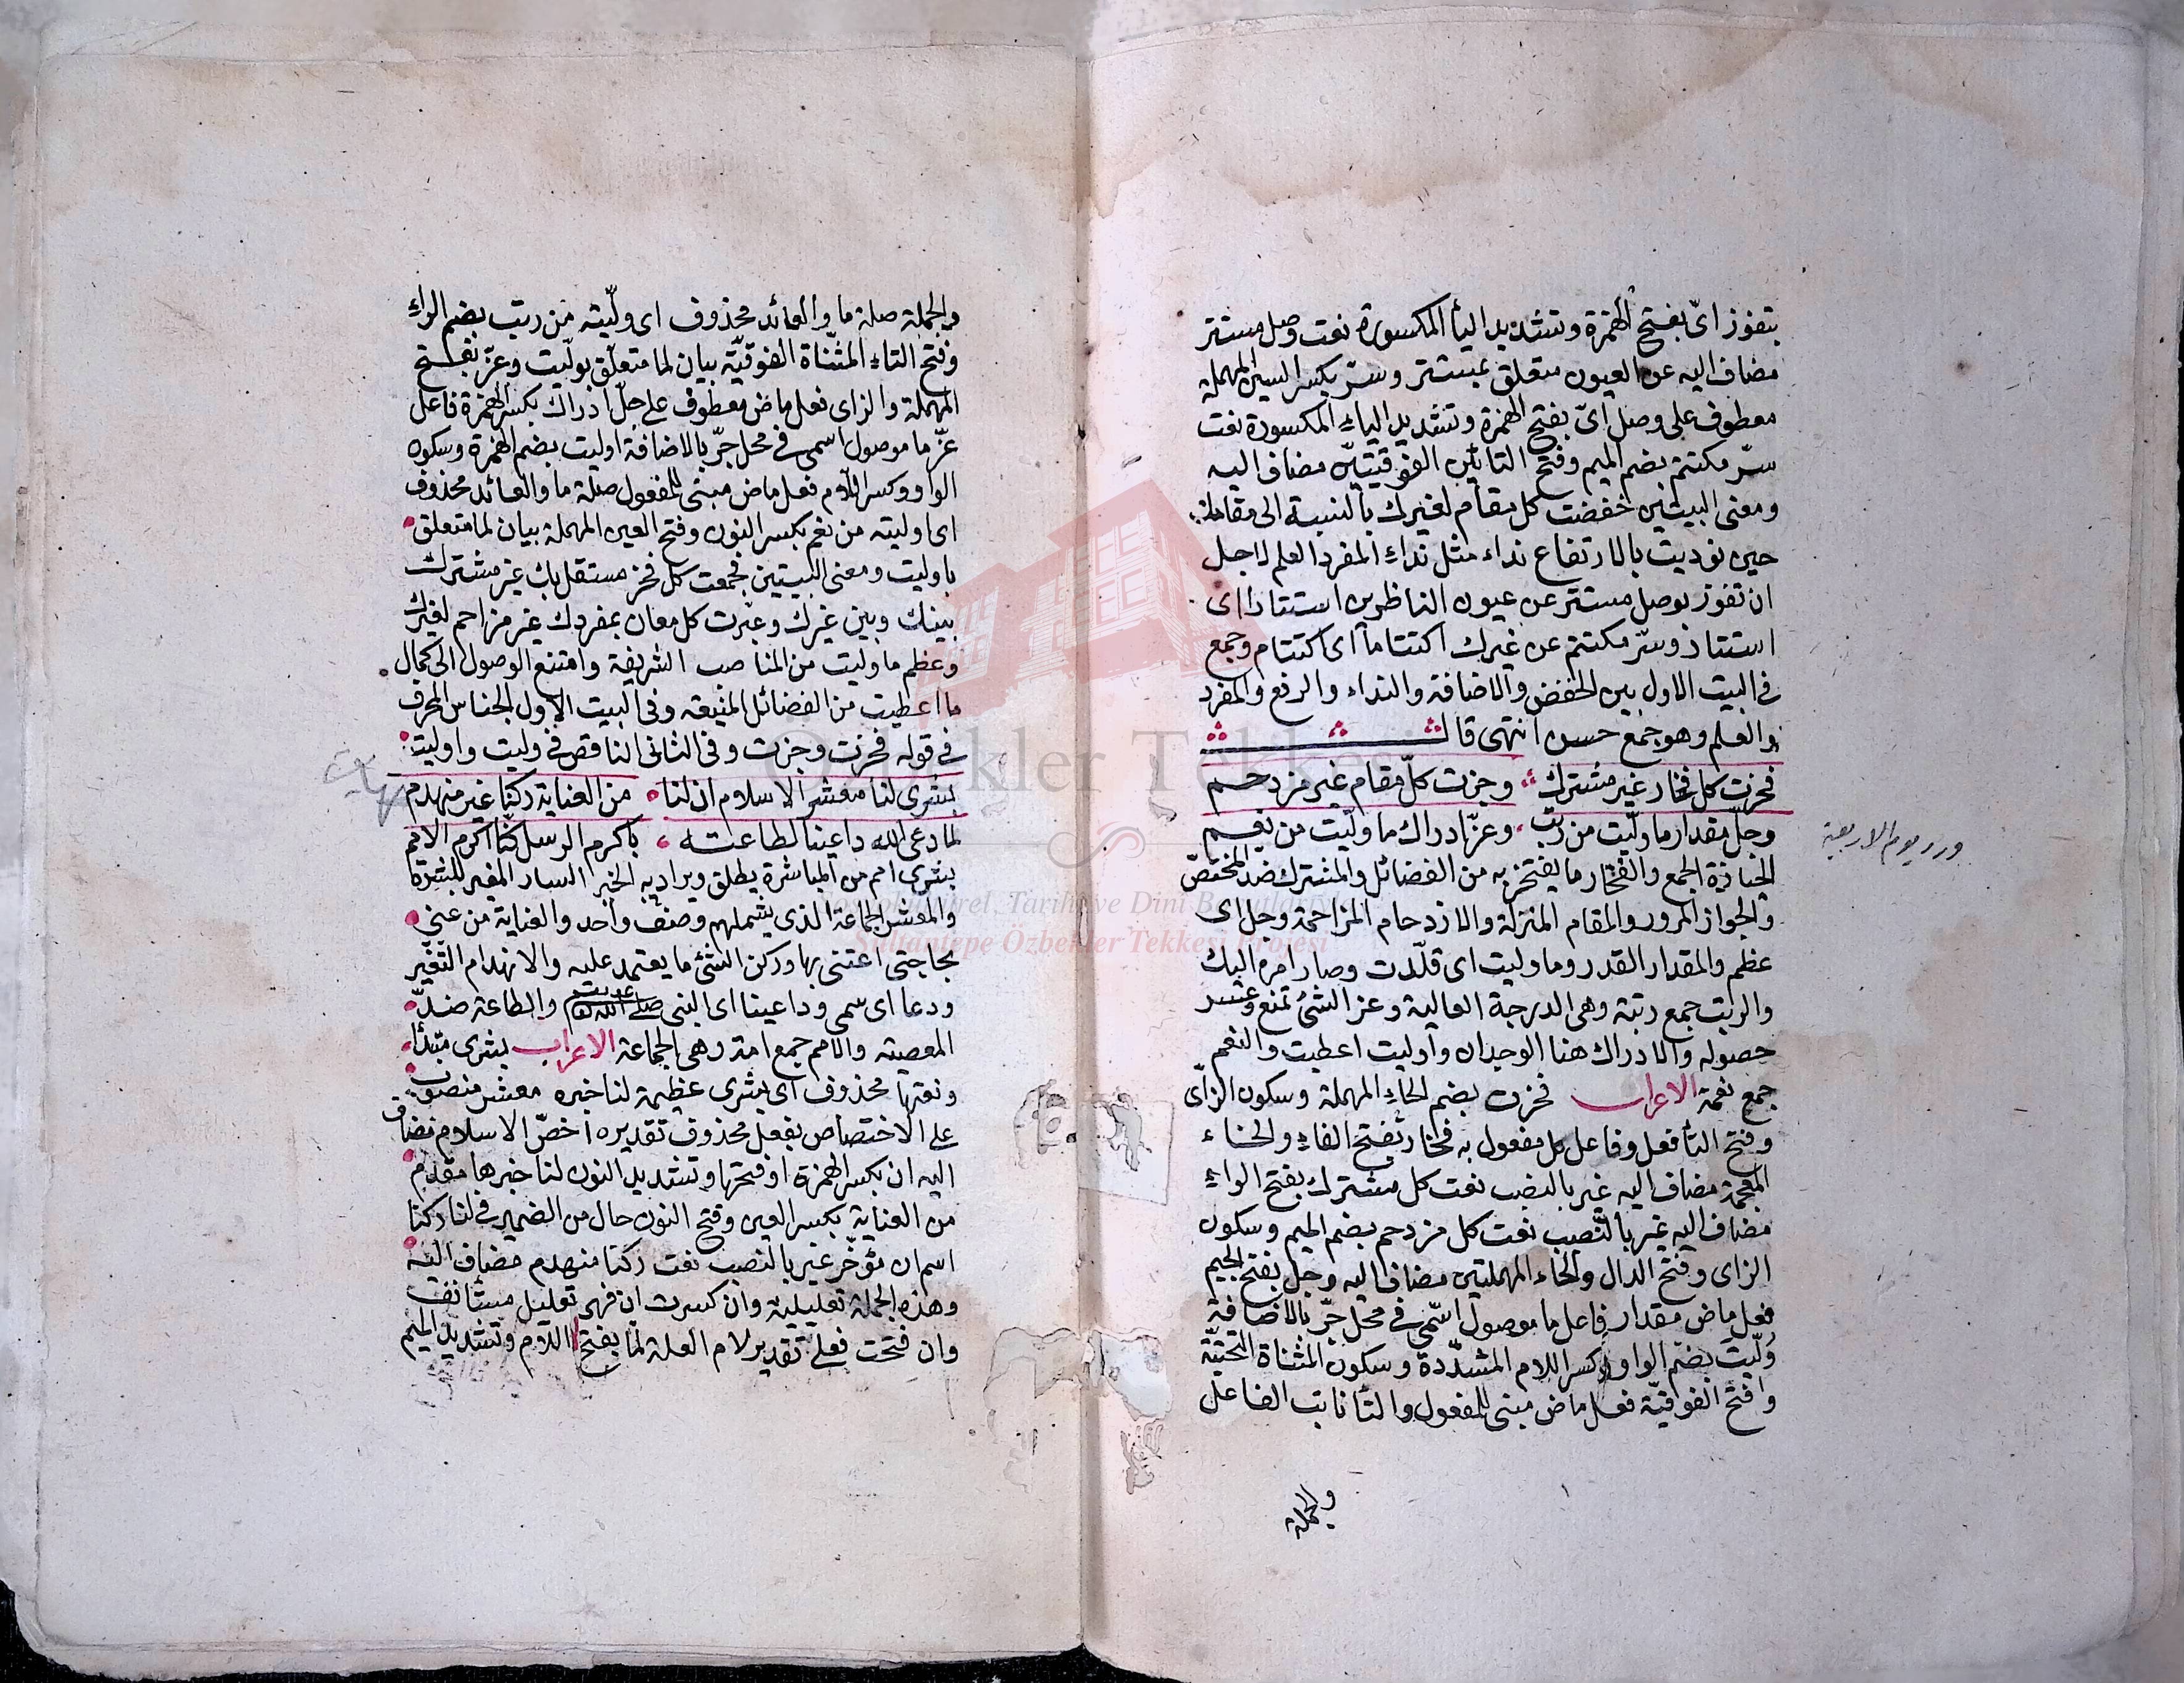 بتفوز اىّ بفتح الهمزة وتشديد اليأ المكسورة نعت وصل مستتر
مضاف اليه عن العيون متعلق بمستتر وسرّ بكسر السين المهملة
معطوف على وصل اىّ بفتح الهمزة وتشديد الياءِ المكسورة نعت
سرّ مكتتم بضم الميم وفتح التائين الفوقيتيّن مضاف اليه
ومعنى البيتين خفضت كل مقام لغيرك بالنسبة الى مقامك
حين نوديت بالارتفاع نداء مثل نداءِ المفرد العلم لاجل
ان تفوز بوصل مستتر عن عيون الناظرين استتارا اى
استتار وسرّ مكتتم عن غيرك اكتتاما اى اكتتام وجمع
فى البيت الاول بين الخفض والاضافة والنداء والرفع والمفرد
والعلم وهو جمع حسن انتهى قال
فحزت كل فخار غير مشترك وجزت كلّ مقام غير مزدحم
وجلّ مقدار ما ولّيت من رتب وعزّ ادراك ما وليت من نعم
الحيازة الجمع والفخار ما يفتخر به من الفضائل والمشترك ضد المختصّ
والجواز المرور والمقام المنزلة والازدحام المزاحمة وجل اى
عظم والمقدار القدر وما وليت اى قلّدت وصار امره اليك
والرتب جمع رتبة وهى الدرجة العالية وعز الشئ تمنع وعسر
حصوله والادراك هنا الوجدان واوليت اعطيت والنعم
جمع نعمة الاعراب فحزت بضم الحاءِ المهملة وسكون الزاى
وفتح التأ فعل وفاعل كل مفعول به فخار بفتح الفاءِ والخاء
المعجمة مضاف اليه غير بالنصب نعت كل مشترك بفتح الراءِ
مضاف اليه غير بالنّصب نعت كل مزدحم بضم الميم وسكون
الزاى وفتح الدال والحاء المهملتين مضاف اليه وجل بفتح الجيم
فعل ماض مقدار فاعل ما موصول اسّمى فى محل جّر بالاضافة
وُلّيتَ بضّم الواو وكسر اللام المشدّدة وسكون المثناة التحتيّة
وافتح الفوقيّة فعل ماض مبنى للمفعول والتا نايب الفاعل
والجملة
ورد يوم الاربعة
والجملة صلة ما والعائد محذوف اى ولّيته من رتب بضم الراءِ
وفتح التاءِ المثّناة الفوقيّة بيان لما متعلّق بولّيت وعزّ بفتح
المهملة والزاى فعل ماض معطوف على جلّ ادراك بكسر الهمزة فاعل
عزّ ما موصول اسمى فى محل جرّ بالاضافة اوليت بضم الهمزة وسكون
الواو وكسر اللّام فعل ماض مبنى للمفعول صلة ما والعائد محذوف
اى اوليته من نعم بكسر النون وفتح العين المهملة بيان لما متعلق
باوليت ومعنى البيتين فجمعت كل فخر مستقل بك غير مشترك
بينك وبين غيرك وعبرت كل معان بمفردك غير مزاحم لغيرك
وعظم ما وليت من المناصب الشريفة وامتنع الوصول الى كمال
ما اعطيت من الفضائل المنيفه وفى البيت الاول الجناس المحرف
فى قوله فحزت وجزت وفى الثانى الناقص فى وليت واوليت
بشرى لنا معشر الاسلام ان لنا من العناية ركنا غير منهدم
لما دعى الله داعينا لطاعته باكرم الرسل كنّا اكرم الامم
بشرى اسم من المباشرة يطلق ويراد به الخبر السار المغير للبشرة
والمعشر الجماعة الذى يشملهم وصنف واحد والعناية من عنى
بحاجتى اعتنى بها وركن الشئ ما يعتمد عليه والانهدام التغير
ودعا اى سمى وداعينا اى النبى صلى الله والطاعة ضدّ
المعصيته والامم جمع امة وهى الجماعة الاعراب بشرى مبتدأ
ونعتها محذوف اى بشرى عظيمة لنا خبره معشر منصوب
على الاختصاص بفعل محذوف تقديره اخصّ الاسلام مضاف
اليه ان بكسر الهمزة او فتحها وتشديد النون لنا خبرها مقدم
من العناية بكسر العين وفتح النون حال من الضمير فى لنا ركنا
اسم ان مؤخّر غير بالنصب نعت ركنا منهدم مضاف اليه
وهذه الجملة تعليلية وان كسرت ان فهى تعليل مستأنف
وان فتحت فعلى تقدير لام العلة لمّا بفتح اللام وتشديد الميم